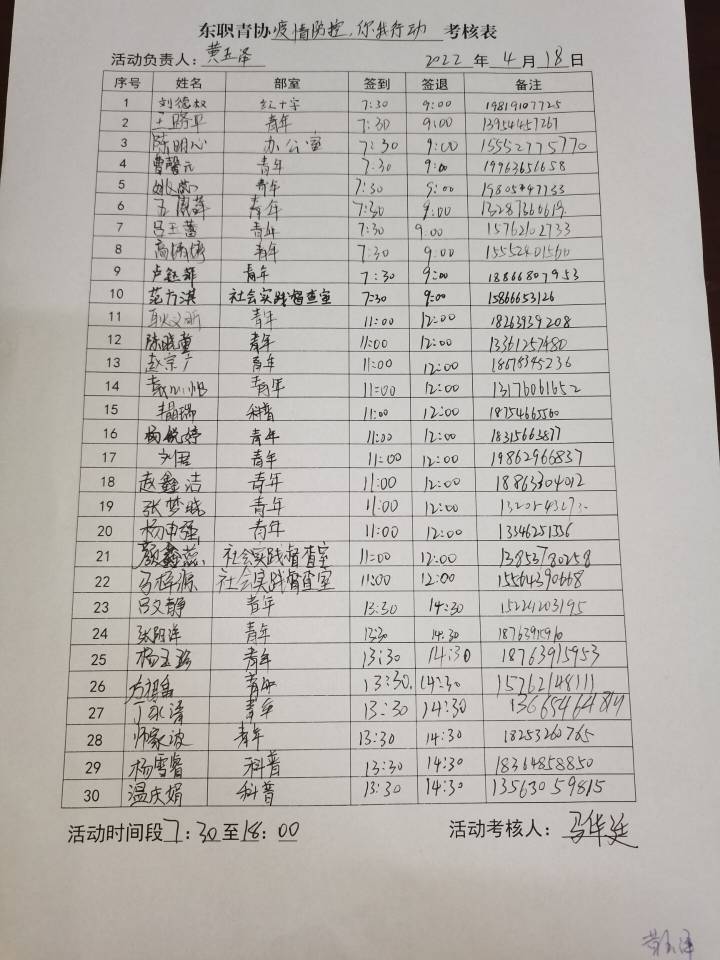 东职青协疫情防控,你我行动 考核表
活动负责人:黄玉泽 2022 年 4 月 18 日
序号 姓名 部室 签到 签退 备注
1 刘德权 红十字 7:30 9:00 19819107725
2 青年 7:30 9:00 13954457267
3 陈明心 办公室 7:30 9:00 15552775770
4 曹馨元 青年 7:30 9:00 19963651658
5 青年 7:30 9:00
6 青年 7:30 9:00
7 吕玉蕾 青年 7:30 9:00 15762102733
8 青年 7:30 9:00 15552401560
9 卢钰菲 青年 7:30 9:00 18866807953
10 范方淇 社会实践督查室 7:30 9:00 15866653126
11 耿文昕 青年 11:00 12:00 18263939208
12 陈晓萱 青年 11:00 12:00 13361257480
13 赵宗广 青年 11:00 12:00 18678345236
14 青年 11:00 12:00 13176061652
15 科普 11:00 12:00 18754665560
16 杨悦婷 青年 11:00 12:00 18315663877
17 刘君 青年 11:00 12:00 19862966837
18 赵鑫洁 青年 11:00 12:00 18863304012
19 张梦晓 青年 11:00 12:00
20 杨申强 青年 11:00 12:00 13346251336
21 颜鑫蕊 社会实践督查室 11:00 12:00 13853780258
22 马梓源 社会实践督查室 11:00 12:00 15564390668
23 吕文静 青年 13:30 14:30 15224203195
24 张阳洋 青年 13:30 14:30
25 杨玉珍 青年 13:30 14:30 18763915953
26 青年 13:30 14:30 15762148111
27 丁永泽 青年 13:30 14:30 13665464814
28 师家波 青年 13:30 14:30 18253260765
29 杨雪睿 科普 13:30 14:30 18364858850
30 温庆娟 科普 13:30 14:30 13563059815
活动时间段7:30至18:00 活动考核人:马华廷
黄玉泽